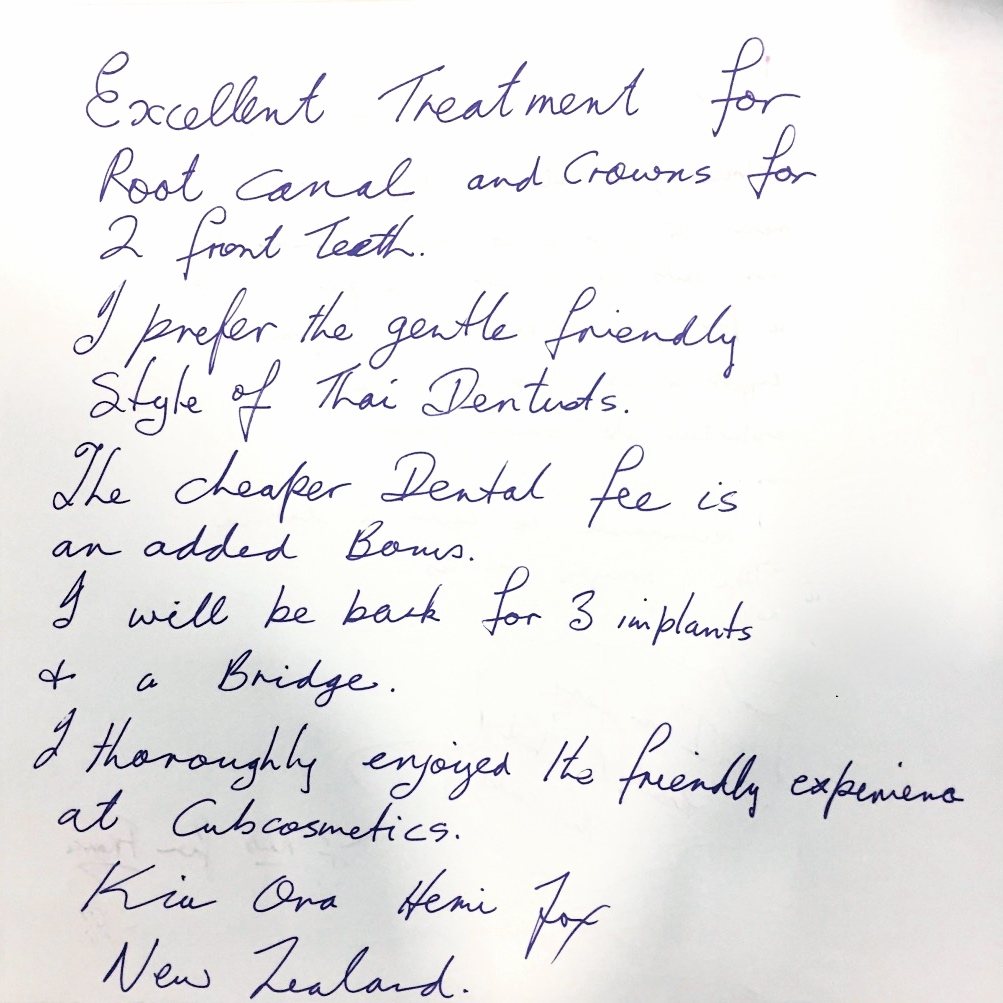 Excellent Treatment for
Root canal and Crowns for
2 front Teeth.
I prefer the gentle friendly
Style of Thai Dentists.
The cheaper Dental fee is
an added Bonus.
I will be back for 3 implants
& a Bridge.
I thoroughly enjoyed the friendly experience
at Cubcosmetics.
Kia Ora Hemi Fox
New Zealand.